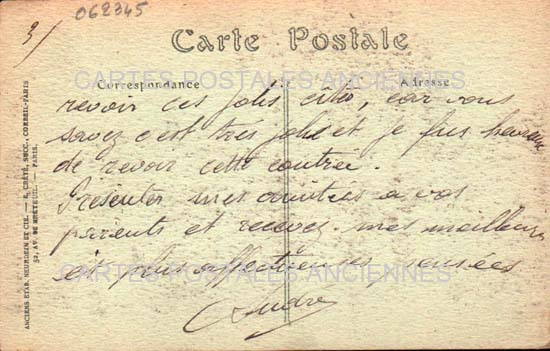 062345
3/
Carte Postale
CARTES POSTALES ANCIENNES
Correspondance
Adresse
revoir ces jolis sites, car vous
savez c'est très joli et je fus heureux
de revoir cette contrée.
Présentez mes amitiés a vos
parents et recevez mes meilleurs
et plus affectueuses pensées
CARTES POSTALES ANCIENNES
André
ANCIENS ETAB. NEURDEIN ET CIE. — E. CRÉTÉ, SUCC., CORBEIL-PARIS
52, AV. DE BRETEUIL. — PARIS.